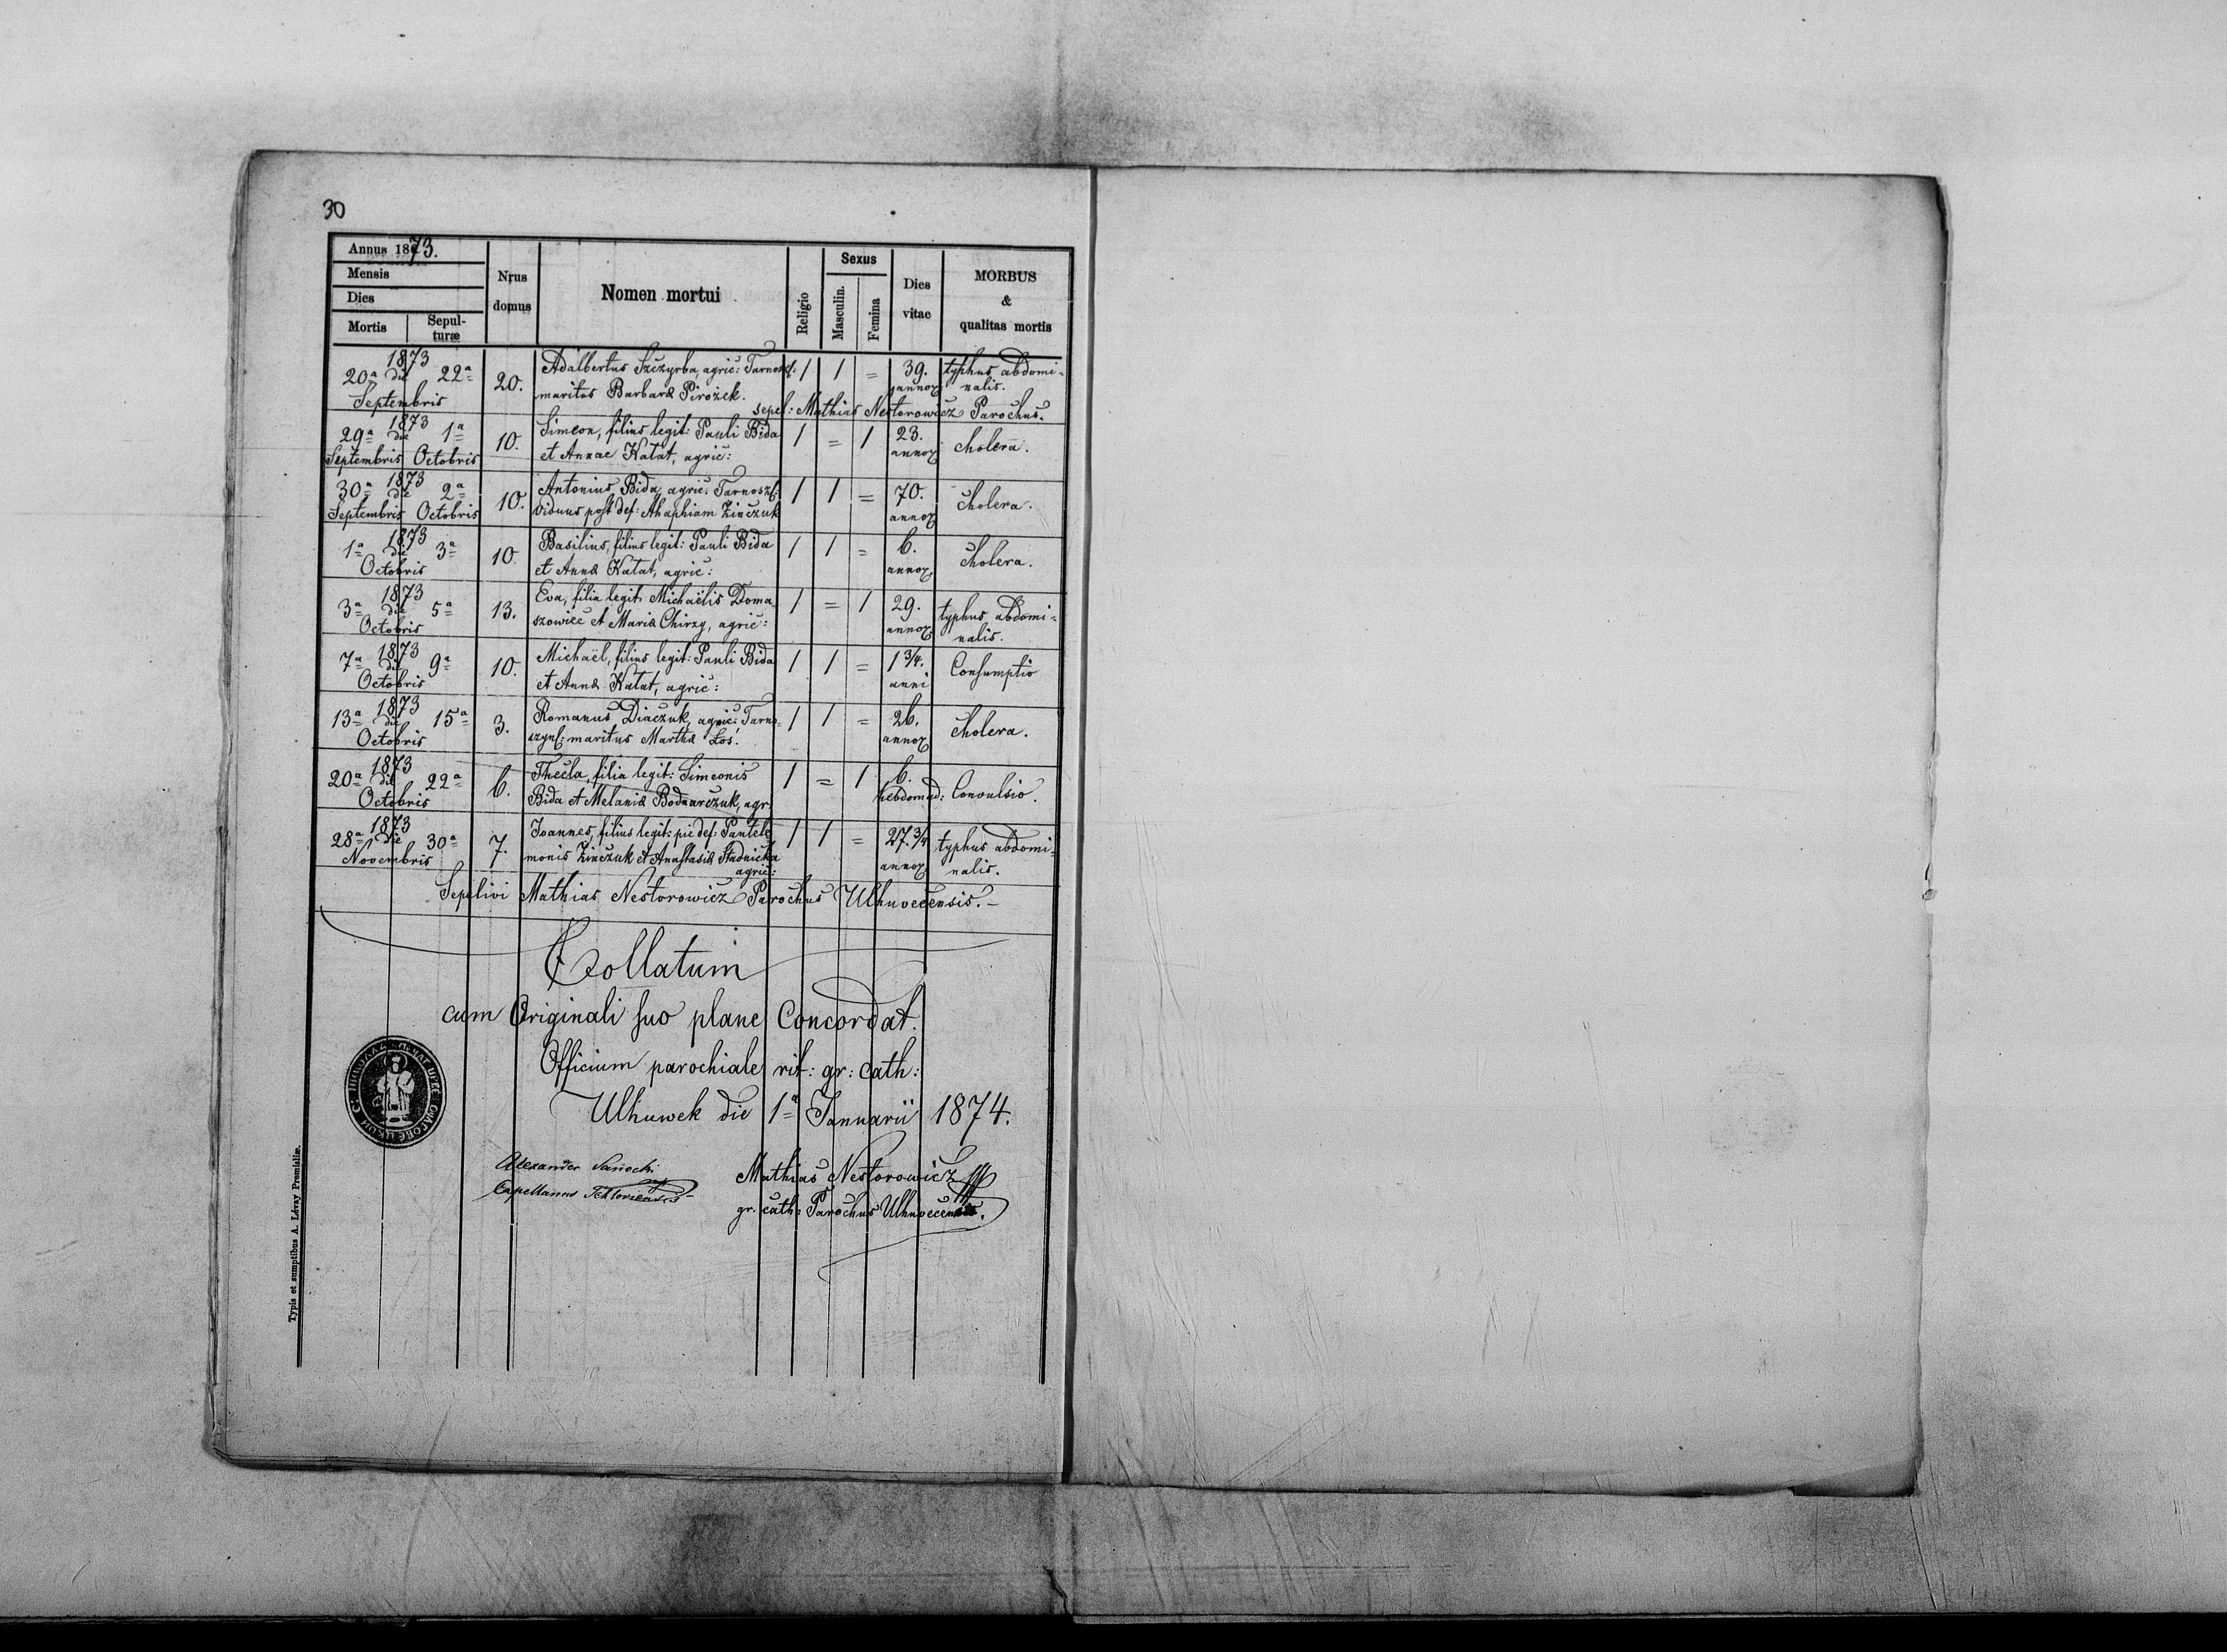 30
Annus 1873.
Mensis
Dies
Mortis Sepulturæ
Nrus domus
Nomen mortui
Religio
Sexus
Masculin. Femina
Dies vitae
MORBUS & qualitas mortis
1873
20ª die 22ª 20. Adalbertus Szczyrba, agric: Tarnosz: 1 1 = 39. typhus abdomi-
Septembris maritus Barbaræ Pirożek. annor nalis.
sepel: Mathias Nestorowicz Parochus.
1873
29ª die 1ª 10. Simeon, filius legit: Pauli Bida 1 = 1 23. cholera.
Septembris Octobris et Annae Katat, agric: annor
1873
30ª die 2ª 10. Antonius Bida, agric: Tarnosz: 1 1 = 70. cholera.
Septembris Octobris viduus post def: Ahaphiam Zinczuk annor
1873
1ª die 3ª 10. Basilius, filius legit: Pauli Bida 1 1 = 6. cholera.
Octobris et Annæ Katat, agric: annor
1873
3ª die 5ª 13. Eva, filia legit: Michaëlis Doma- 1 = 1 29. typhus abdomi-
Octobris szowiec et Mariæ Chirzy, agric: annor nalis.
1873
7ª die 9ª 10. Michaël, filius legit: Pauli Bida 1 1 = 1 3/4. Consumptio
Octobris et Annæ Katat, agric: anni
1873
13ª die 15ª 3. Romanus Diaczuk, agric: Tarno- 1 1 = 26. cholera.
Octobris szyns: maritus Marthæ Łoś. annor
1873
20ª die 22ª 6. Thecla, filia legit: Simeonis 1 = 1 6. Convulsio.
Octobris Bida et Melaniæ Bodnarczuk, agr. hebdomad:
1873
28ª die 30ª 7. Joannes, filius legit: pie def: Pantele- 1 1 = 27.3/4 typhus abdomi-
Novembris monis Zinczuk et Anastasiæ Stadnicka annor nalis.
agric:
Sepelivi Mathias Nestorowicz Parochus Ulhuvecensis.-
Collatum
cum Originali suo plane Concordat.
Officium parochiale rit: gr: cath:
Ulhuwek die 1ª Januarii 1874.
Alexander Sanocki
Capellanus
Mathias Nestorowicz
gr. cath: Parochus Ulhuvecensis.
Typis et sumptibus A. Lévay Premisliæ.